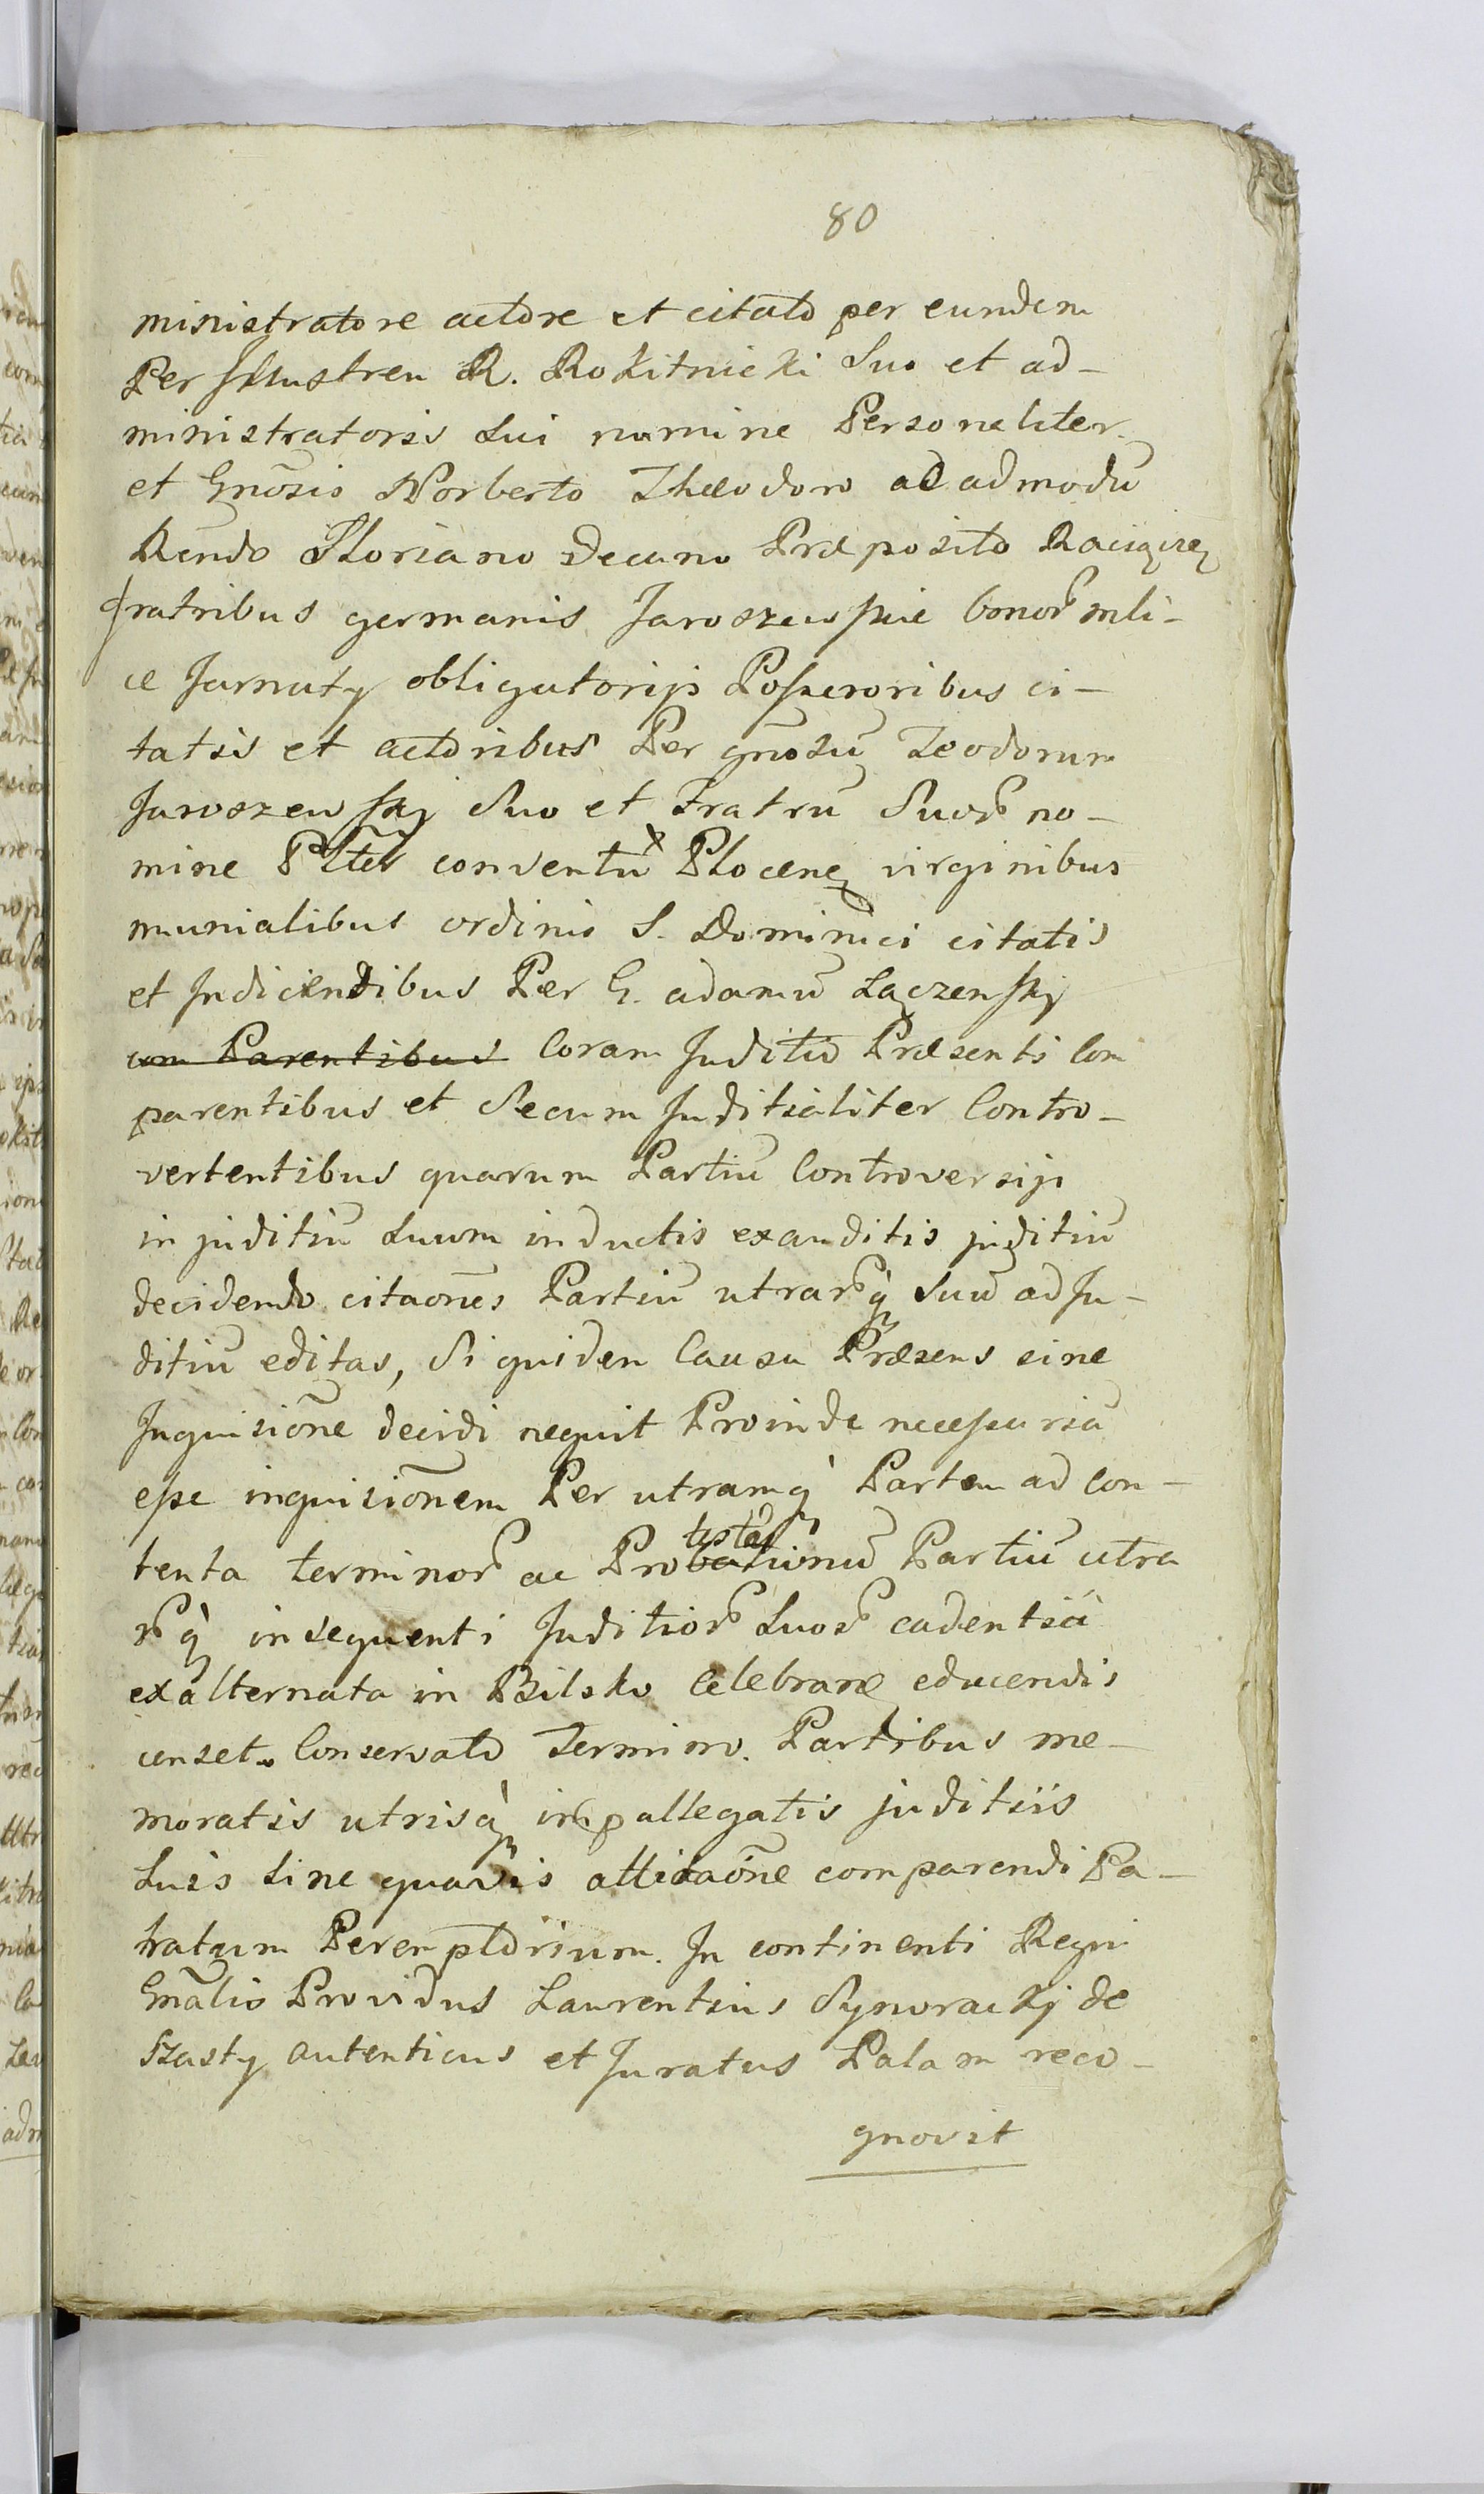 80
ministratore actore et citato per eundem
Per Jllustrem R. Rokitnicki Suo et ad-
ministratoris Sui nomine Personaliter
et Gnosis Norberto Theodoro ac admodũ
Rendo Floriano Decano Præposito Raciązẽ
fratribus germanis Jaroszewskie bonor mli-
ce Jarnuty obligatorijs Possessoribus ci-
tatis et actoribus Per gnosũ Teodorum
Jaroszewskj Suo et Fratrũ Suor no-
mine Plter conventũ Plocenẽ virginibus
munialibus ordinis S. Dominici citatis
et Judicendibus Per G. adamũ Łączenskj
com Parentibus Coram Juditio Præsenti Com
parentibus et Secum Juditialiter Contro-
vertentibus quarum Partiũ Controversijs
in juditiũ Suum inductis exauditis juditiũ
decidendo citaões Partiũ utrarq̃ Suũ ad Ju-
ditiũ editas, Siquidem Causa Præsens sine
Jnquisiõne decidi nequit Proinde necessariã
esse inquisiõnem Per utramq̃ Partem ad Con-
tenta terminor ac Probationũ Partiũ utra
testa
rq̃ insequenti Juditior Suor cadentiã
exalternata in Bilsko Celebranẽ educendis
censet. Conservato Termino. Partibus me-
moratis utrisq̃ in pallegatis juditiis
Suis Sine quavis attitaõne comparendi Pa-
ratum Peremptorium. Jn continenti Regni
Gnãlis Providus Laurentius Synorackj de
Szasty autenticus et Juratus Palam reco-
gnovit